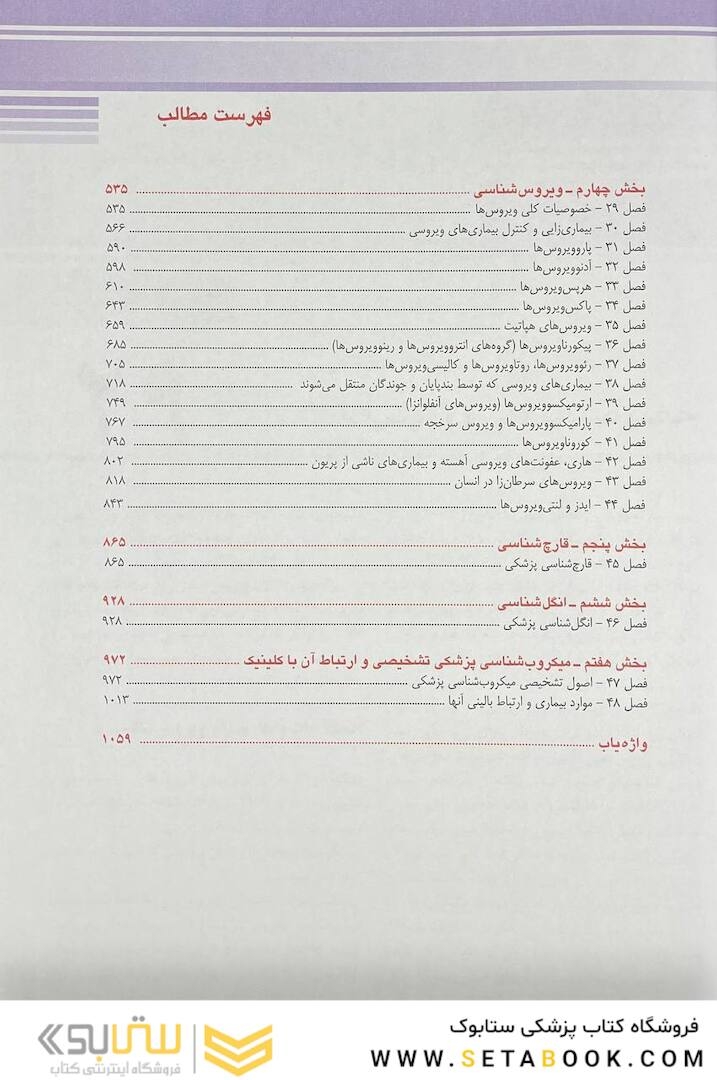 فهرست مطالب
بخش چهارم ـ ویروس‌شناسی ۵۳۵
فصل ۲۹ - خصوصیات کلی ویروس‌ها ۵۳۵
فصل ۳۰ - بیماری‌زایی و کنترل بیماری‌های ویروسی ۵۶۶
فصل ۳۱ - پاروویروس‌ها ۵۹۰
فصل ۳۲ - آدنوویروس‌ها ۵۹۸
فصل ۳۳ - هرپس‌ویروس‌ها ۶۱۰
فصل ۳۴ - پاکس‌ویروس‌ها ۶۴۳
فصل ۳۵ - ویروس‌های هپاتیت ۶۵۹
فصل ۳۶ - پیکورناویروس‌ها (گروه‌های انتروویروس‌ها و رینوویروس‌ها) ۶۸۵
فصل ۳۷ - رئوویروس‌ها، روتاویروس‌ها و کالیسی‌ویروس‌ها ۷۰۵
فصل ۳۸ - بیماری‌های ویروسی که توسط بندپایان و جوندگان منتقل می‌شوند ۷۱۸
فصل ۳۹ - ارتومیکسوویروس‌ها (ویروس‌های آنفلوانزا) ۷۴۹
فصل ۴۰ - پارامیکسوویروس‌ها و ویروس سرخجه ۷۶۷
فصل ۴۱ - کوروناویروس‌ها ۷۹۵
فصل ۴۲ - هاری، عفونت‌های ویروسی آهسته و بیماری‌های ناشی از پریون ۸۰۲
فصل ۴۳ - ویروس‌های سرطان‌زا در انسان ۸۱۸
فصل ۴۴ - ایدز و لنتی‌ویروس‌ها ۸۴۳
بخش پنجم ـ قارچ‌شناسی ۸۶۵
فصل ۴۵ - قارچ‌شناسی پزشکی ۸۶۵
بخش ششم ـ انگل‌شناسی ۹۲۸
فصل ۴۶ - انگل‌شناسی پزشکی ۹۲۸
بخش هفتم ـ میکروب‌شناسی پزشکی تشخیصی و ارتباط آن با کلینیک ۹۷۲
فصل ۴۷ - اصول تشخیصی میکروب‌شناسی پزشکی ۹۷۲
فصل ۴۸ - موارد بیماری و ارتباط بالینی آنها ۱۰۱۳
واژه‌یاب ۱۰۵۹
فروشگاه کتاب پزشکی ستابوک
WWW.SETABOOK.COM
ستابوک
فروشگاه اینترنتی کتاب